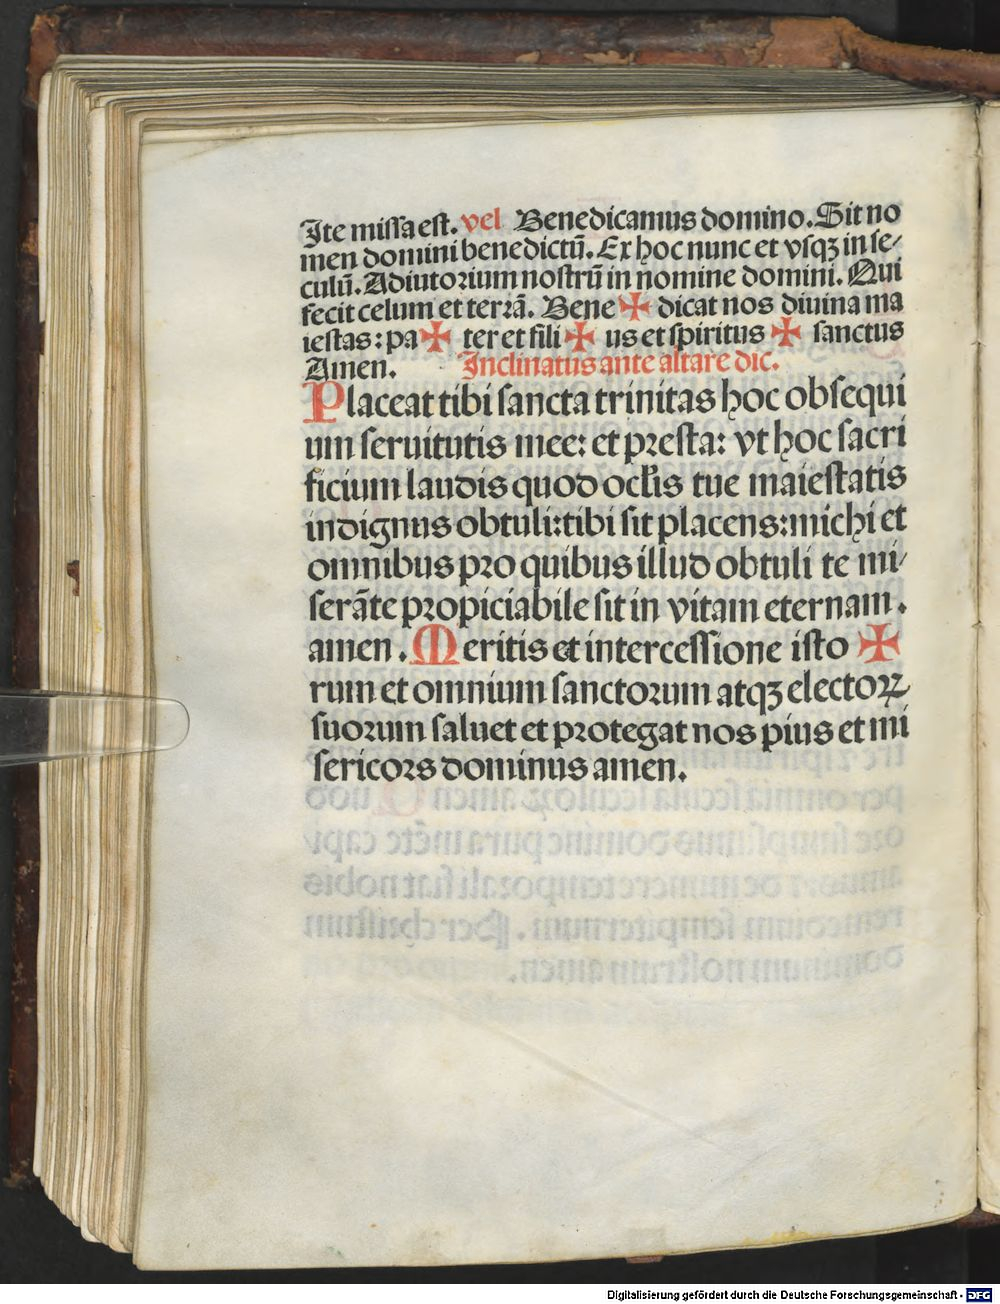 Ite missa est. vel Benedicamus domino. Sit no
men domini benedictū. Ex hoc nunc et vsqꝫ in se/
culū. Adiutoꝛium nostrū in nomine domini. Qui
fecit celum et terꝛā. Bene ✠ dicat nos diuina ma
iestas: pa ✠ ter et fili ✠ us et spiritus ✠ sanctus
Amen. Inclinatus ante altare dic.
Placeat tibi sancta trinitas hoc obsequi
um seruitutis mee: et pꝛesta: vt hoc sacri
ficium laudis quod ocłis tue maiestatis
indignus obtuli: tibi sit placens: michi et
omnibus pꝛo quibus illud obtuli te mi/
serāte pꝛopiciabile sit in vitam eternam.
amen. Meritis et intercessione isto ✠
rum et omnium sanctoꝛum atqꝫ electoꝝ
suoꝛum saluet et pꝛotegat nos pius et mi
sericoꝛs dominus amen.
Digitalisierung gefördert durch die Deutsche Forschungsgemeinschaft - DFG